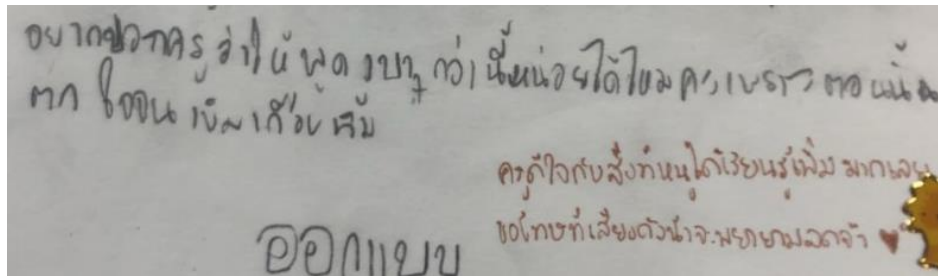 อยากบอกครูว่าให้พูดเบาๆกว่านี้หน่อยได้ไหมคะเพราะตอนนั้น
ตกใจจนเข็มเกือบ
ครูดีใจกับสิ่งที่หนูได้เรียนรู้เพิ่มมากเลย
ขอโทษที่เสียงดังน้าจะพยายามลดจ้า
ออกแบบ